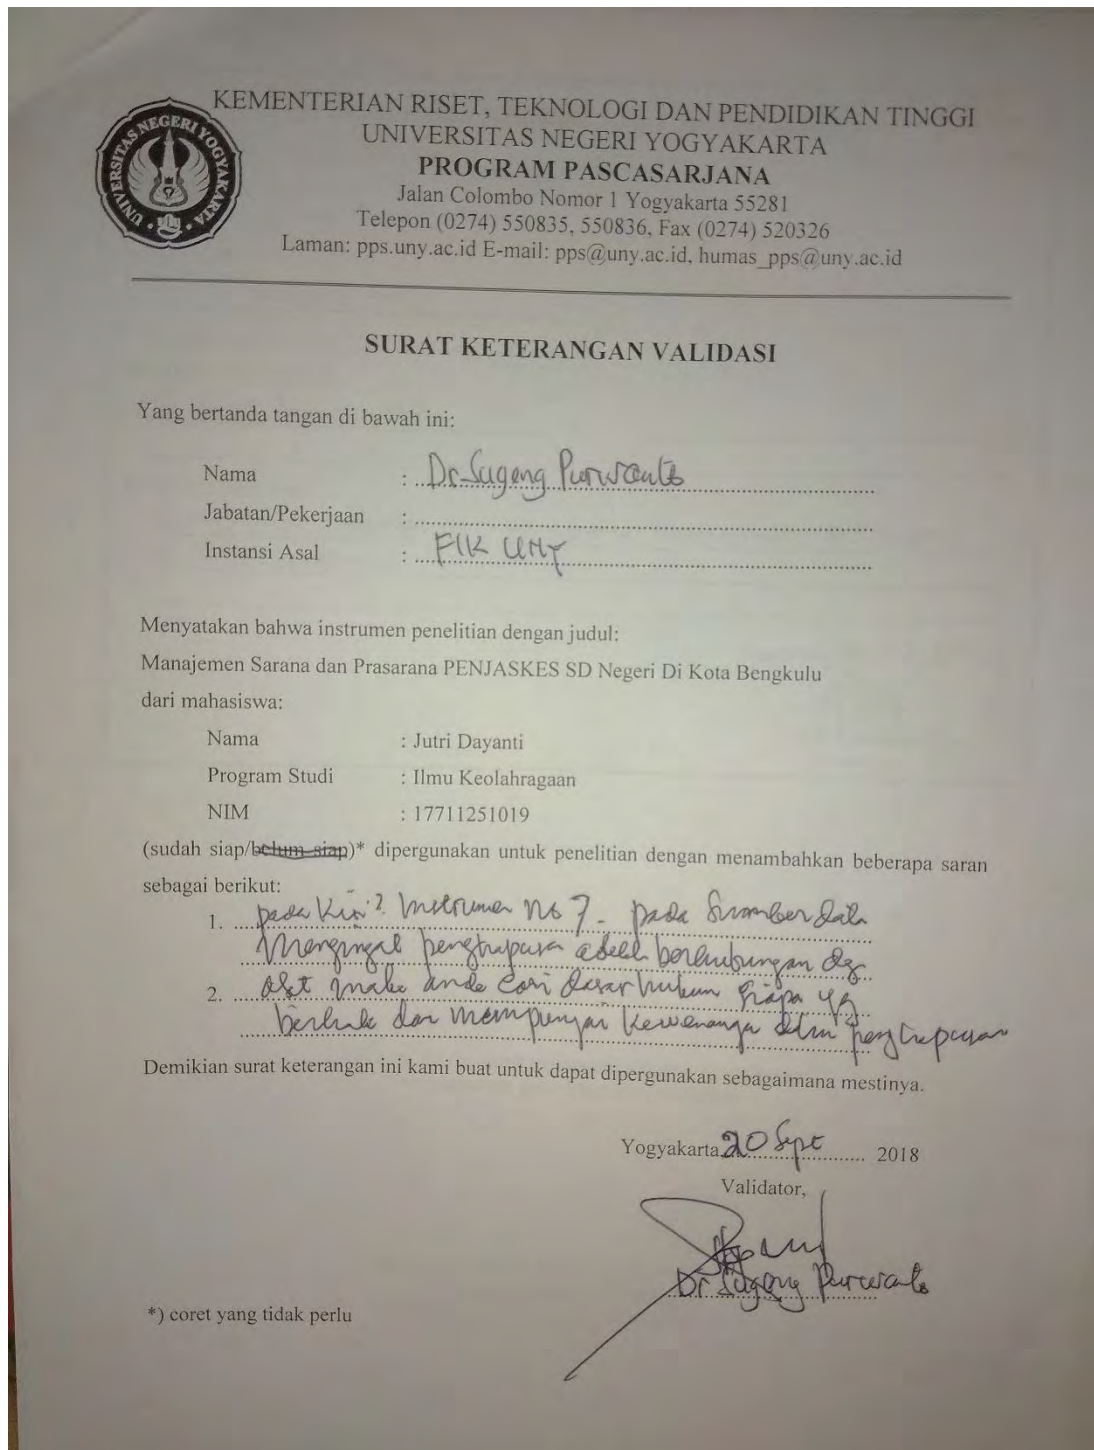 KEMENTERIAN RISET, TEKNOLOGI DAN PENDIDIKAN TINGGI
UNIVERSITAS NEGERI YOGYAKARTA
PROGRAM PASCASARJANA
Jalan Colombo Nomor 1 Yogyakarta 55281
Telepon (0274) 550835, 550836, Fax (0274) 520326
Laman: pps.uny.ac.id E-mail: pps@uny.ac.id, humas_pps@uny.ac.id
UNIVERSITAS NEGERI YOGYAKARTA
SURAT KETERANGAN VALIDASI
Yang bertanda tangan di bawah ini:
Nama : Dr. Sugeng Purwanto
Jabatan/Pekerjaan :
Instansi Asal : FIK UNY
Menyatakan bahwa instrumen penelitian dengan judul:
Manajemen Sarana dan Prasarana PENJASKES SD Negeri Di Kota Bengkulu
dari mahasiswa:
Nama : Jutri Dayanti
Program Studi : Ilmu Keolahragaan
NIM : 17711251019
(sudah siap/belum siap)* dipergunakan untuk penelitian dengan menambahkan beberapa saran
sebagai berikut:
1. pada Kisi2 Instrumen no 7. pada Sumber data
Mengingat penghapusan adalah berhubungan dg
2. aset maka anda cari dasar hukum siapa yg
berhak dan mempunyai kewenangan dlm penghapusan
Demikian surat keterangan ini kami buat untuk dapat dipergunakan sebagaimana mestinya.
Yogyakarta 20 Sept 2018
Validator,
Dr Sugeng Purwanto
*) coret yang tidak perlu